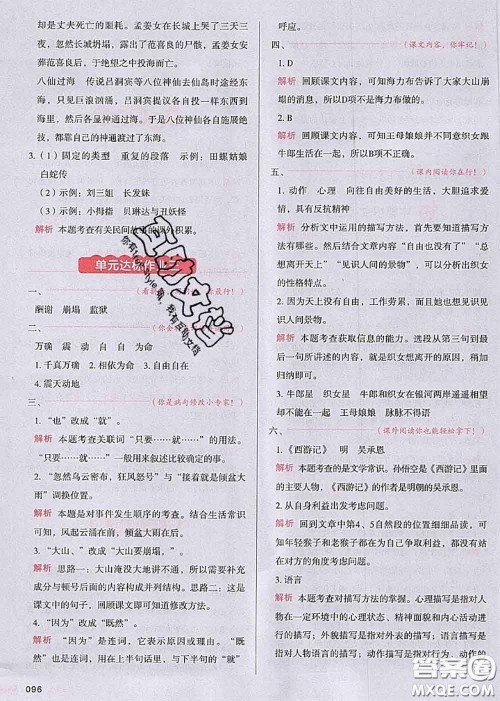 却是丈夫死亡的噩耗。孟姜女在长城上哭了三天三
夜，忽然长城坍塌，露出了范喜良的尸骸，孟姜女安
葬范喜良后，于绝望之中投海而亡。
八仙过海 传说吕洞宾等八位神仙去仙岛时途经东
海，只见巨浪汹涌，吕洞宾提议各自想办法渡海，然
后，各显神通渡过了东海。
3. (1) 固定的类型 重复的段落 田螺姑娘
白蛇传
(2) 示例：刘三姐 长发妹
(3) 示例：小拇指 贝琳达与丑妖怪
解析 本题考查有关民间故事的课外积累。
单元达标作业二
一、
酬谢 崩塌 监狱
二、
万 确 震 动 自 自 为 命
1. 千真万确 2. 相依为命 3. 自由自在
4. 震天动地
三、 (你是病句修改小专家！)
1. “也”改成“就”。
解析 本题考查关联词“只要……就……”的用法。
“只要……就……”一般用来叙述比较确定的事。
2. “忽然乌云密布，狂风怒号”与“接着就是倾盆大
雨”调换位置。
解析 本题是对事件发生顺序的考查。结合生活常识
可知，风起云涌在前，倾盆大雨在后。
3. “大山、”改成“大山要崩塌，”。
解析 思路一：大山淹没大地讲不通，所以需要补充
成分与顿号后面的内容构成并列结构。思路二：这是
课文中的句子，回顾课文即可知道修改方法。
4. “因为”改成“既然”。
解析 “因为”是连词，它表示原因或理由。“既
然”也是连词，用于上半句，与下半句的“就”
096
呼应。
四、 (课文内容，你牢记！)
1. D
解析 回顾课文内容，可知海力布告诉了大家大山崩
塌的消息，所以D项不是海力布做的。
2. B
解析 回顾课文内容，可知王母娘娘并不同意织女跟
牛郎生活在一起，所以B项不正确。
五、 (课内阅读你在行！)
1. 动作 心理 向往自由美好的生活，大胆追求爱
情，具有反抗精神
解析 分析文中运用的描写方法，应回到文中，关
注描写人物的语句，从“自由也没有了”“自由自
在”“去人间”“见识人间的情景”，可以分析出织女
的性格特点。
2. 因为天上没有自由，工作劳累，而且织女想见识见
识人间景物。
解析 本题考查获取信息的能力。选段从第三句到最
后一句所讲述的内容，就是织女想离开的原因，稍作
归纳即可。
3. 牛郎 织女星 牛郎和织女在银河两岸遥遥相望
却不能在一起 王母娘娘 脉脉不得语
六、 (课外阅读你也能轻松拿下！)
1. 《西游记》 明 吴承恩
解析 本题考查的是文学常识。孙悟空是《西游记》里
的主要人物，《西游记》的作者是明朝的吴承恩。
2. 从自身利益出发考虑问题。
解析 回到文章中第4、5自然段的位置，围绕着年
轻的和老猴子都在为自己争取利益，可以看出它
们是从自身的角度考虑问题。
3. 语言
解析 本题考查对描写方法的掌握。心理描写是指对
人物在一定环境中的心理状态、精神面貌和内心活动
进行的描写；动作描写是指对人物的行为和动作的描
写；外貌描写是指对人物的外表的描写；语言描写是指